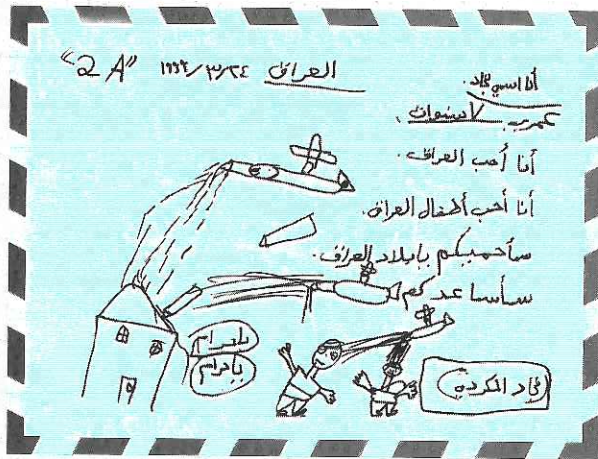 العراق "2 A"
أنا اسمي جاد.
عمري سنوات.
أنا أحب العراق.
أنا أحب أطفال العراق.
سأحميكم يا بلاد العراق.
سأساعدكم
يا حرام
يا حرام
جاد